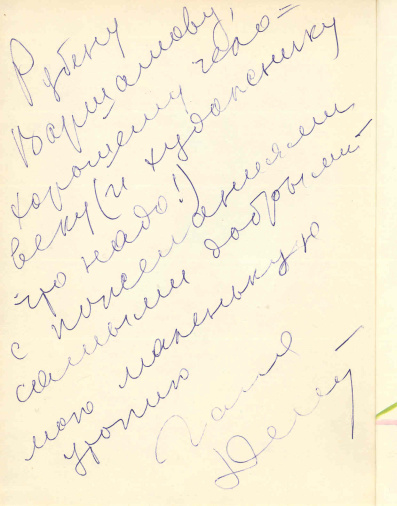 Рубену
Варшамову,
хорошему чело=
веку (и художнику
что надо!)
с пожеланиями
самыми добрыми
мою маленькую
утопию
Галя